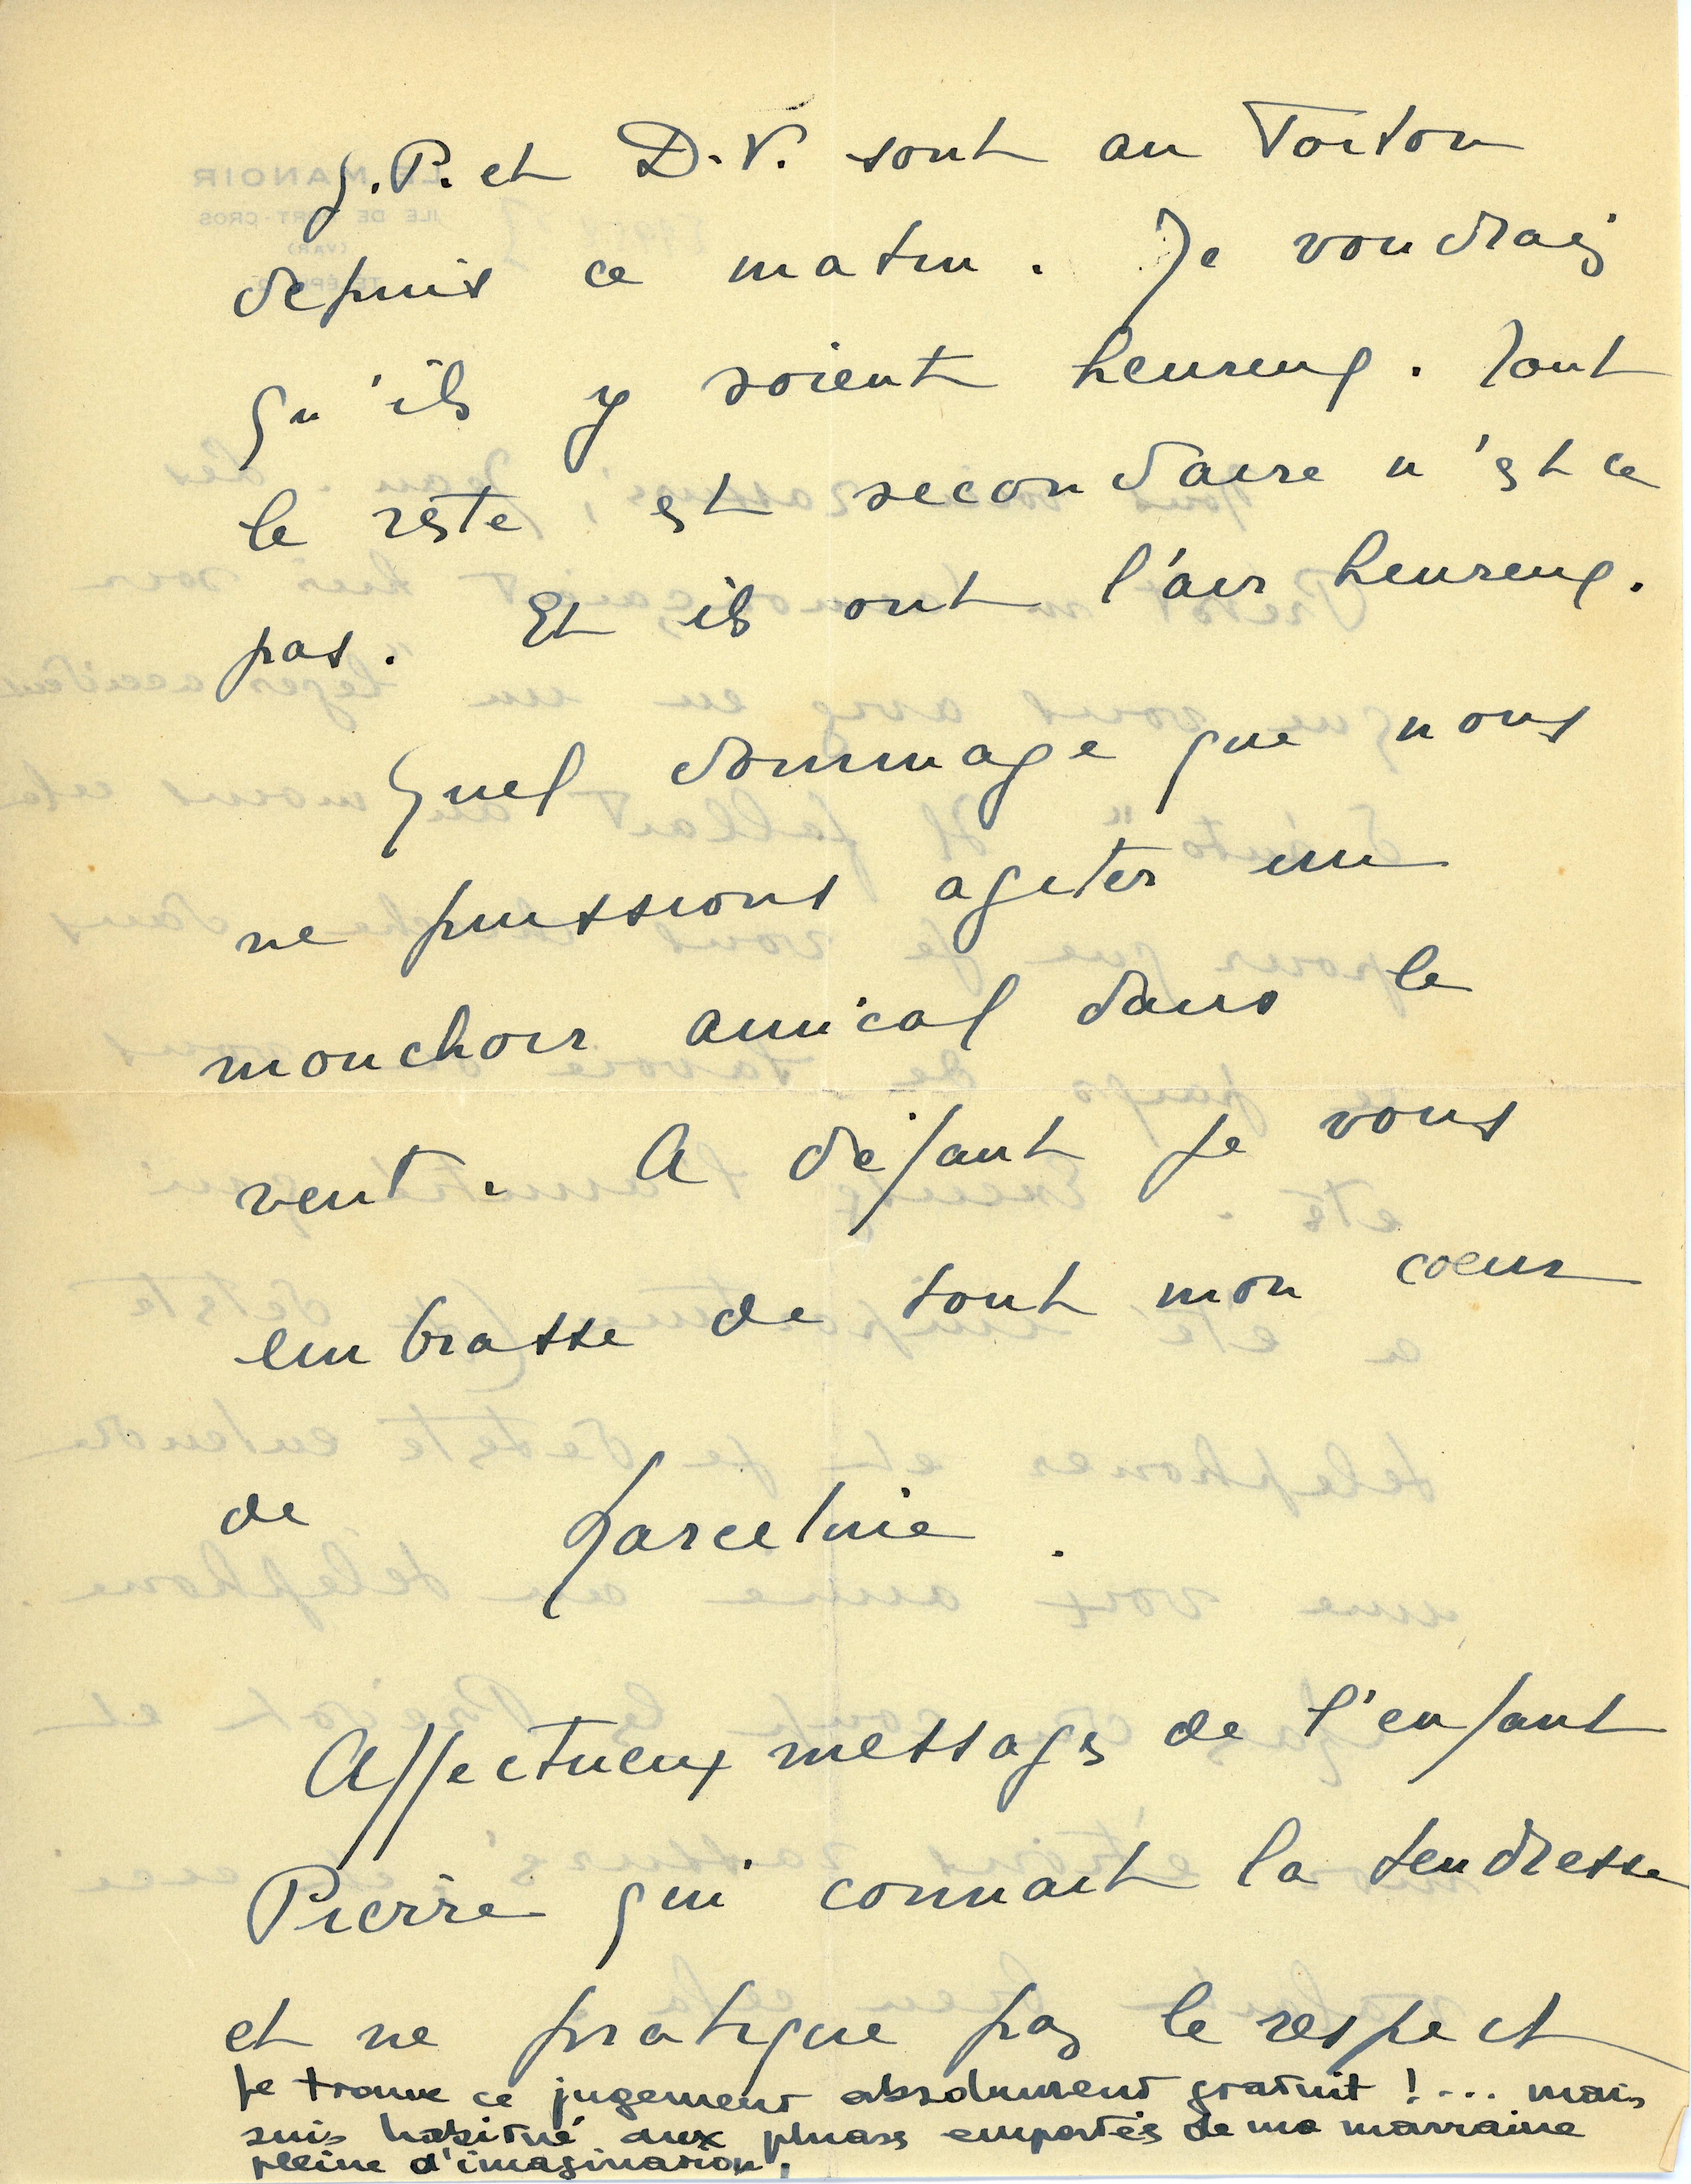 J.P. et D.V. sont au Torton
depuis ce matin. Je voudrais
qu'ils y soient heureux. Tout
le reste est secondaire n'est ce
pas. Et ils ont l'air heureux.
Quel dommage que nous
ne puissions agiter un
mouchoir amical dans le
vent. A défaut je vous
embrasse de tout mon coeur
de Marceline.
Affectueux messages de l'enfant
Pierre qui connait la tendresse
et ne pratique pas le respect
je trouve ce jugement absolument gratuit !... mais
suis habitué aux phrases emportées de ma marraine
pleine d'imagination.
LE MANOIR
ILE DE PORT-CROS
(VAR)